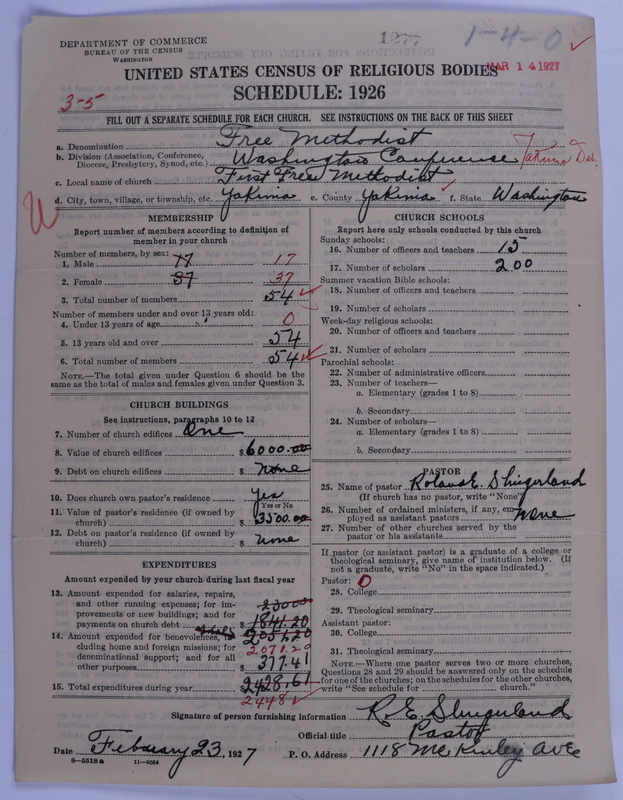 DEPARTMENT OF COMMERCE
BUREAU OF THE CENSUS
WASHINGTON
1-4-0
MAR 14 1927
UNITED STATES CENSUS OF RELIGIOUS BODIES
SCHEDULE: 1926
3-5
FILL OUT A SEPARATE SCHEDULE FOR EACH CHURCH. SEE INSTRUCTIONS ON THE BACK OF THIS SHEET
a. Denomination Free Methodist
b. Division (Association, Conference, Diocese, Presbytery, Synod, etc.) Washington Conference Yakima Dist.
c. Local name of church First Free Methodist
d. City, town, village, or township, etc. Yakima e. County Yakima f. State Washington
MEMBERSHIP
Report number of members according to definition of
member in your church
Number of members, by sex:
1. Male 17 17
2. Female 37 37
3. Total number of members 54
Number of members under and over 13 years old:
4. Under 13 years of age 0
5. 13 years old and over 54
6. Total number of members 54
NOTE.—The total given under Question 6 should be
same as the total of males and females given under Question 3.
CHURCH BUILDINGS
See instructions, paragraphs 10 to 12
7. Number of church edifices One
8. Value of church edifices $6000.00
9. Debt on church edifices $ None
10. Does church own pastor's residence Yes
Yes or No
11. Value of pastor's residence (if owned by
church) $3500.00
12. Debt on pastor's residence (if owned by
church) $ None
EXPENDITURES
Amount expended by your church during last fiscal year
13. Amount expended for salaries, repairs,
and other running expenses; for im-
provements or new buildings; and for
payments on church debt 230.00
$1841.20
2051.20
2071.20
14. Amount expended for benevolences, in-
cluding home and foreign missions; for
denominational support; and for all
other purposes $ 377.41
15. Total expenditures during year $2428.61
2448
CHURCH SCHOOLS
Report here only schools conducted by this church
Sunday schools:
16. Number of officers and teachers 15
17. Number of scholars 200
Summer vacation Bible schools:
18. Number of officers and teachers
19. Number of scholars
Week-day religious schools:
20. Number of officers and teachers
21. Number of scholars
Parochial schools:
22. Number of administrative officers
23. Number of teachers—
a. Elementary (grades 1 to 8)
b. Secondary
24. Number of scholars—
a. Elementary (grades 1 to 8)
b. Secondary
PASTOR
25. Name of pastor Roland E. Slingerland
(If church has no pastor, write "None")
26. Number of ordained ministers, if any, em-
ployed as assistant pastors None
27. Number of other churches served by the
pastor or his assistants
If pastor (or assistant pastor) is a graduate of a college or
theological seminary, give name of institution below. (If
not a graduate, write "No" in the space indicated.)
Pastor: 0
28. College
29. Theological seminary
Assistant pastor:
30. College
31. Theological seminary
NOTE.—Where one pastor serves two or more churches,
Questions 28 and 29 should be answered only on the schedule
for one of the churches; on the schedules for the other churches,
write "See schedule for church."
Signature of person furnishing information R. E. Slingerland
Official title Pastor
Date February 23, 1927 P. O. Address 1118 McKinley Ave
8-5518 a 11-9054